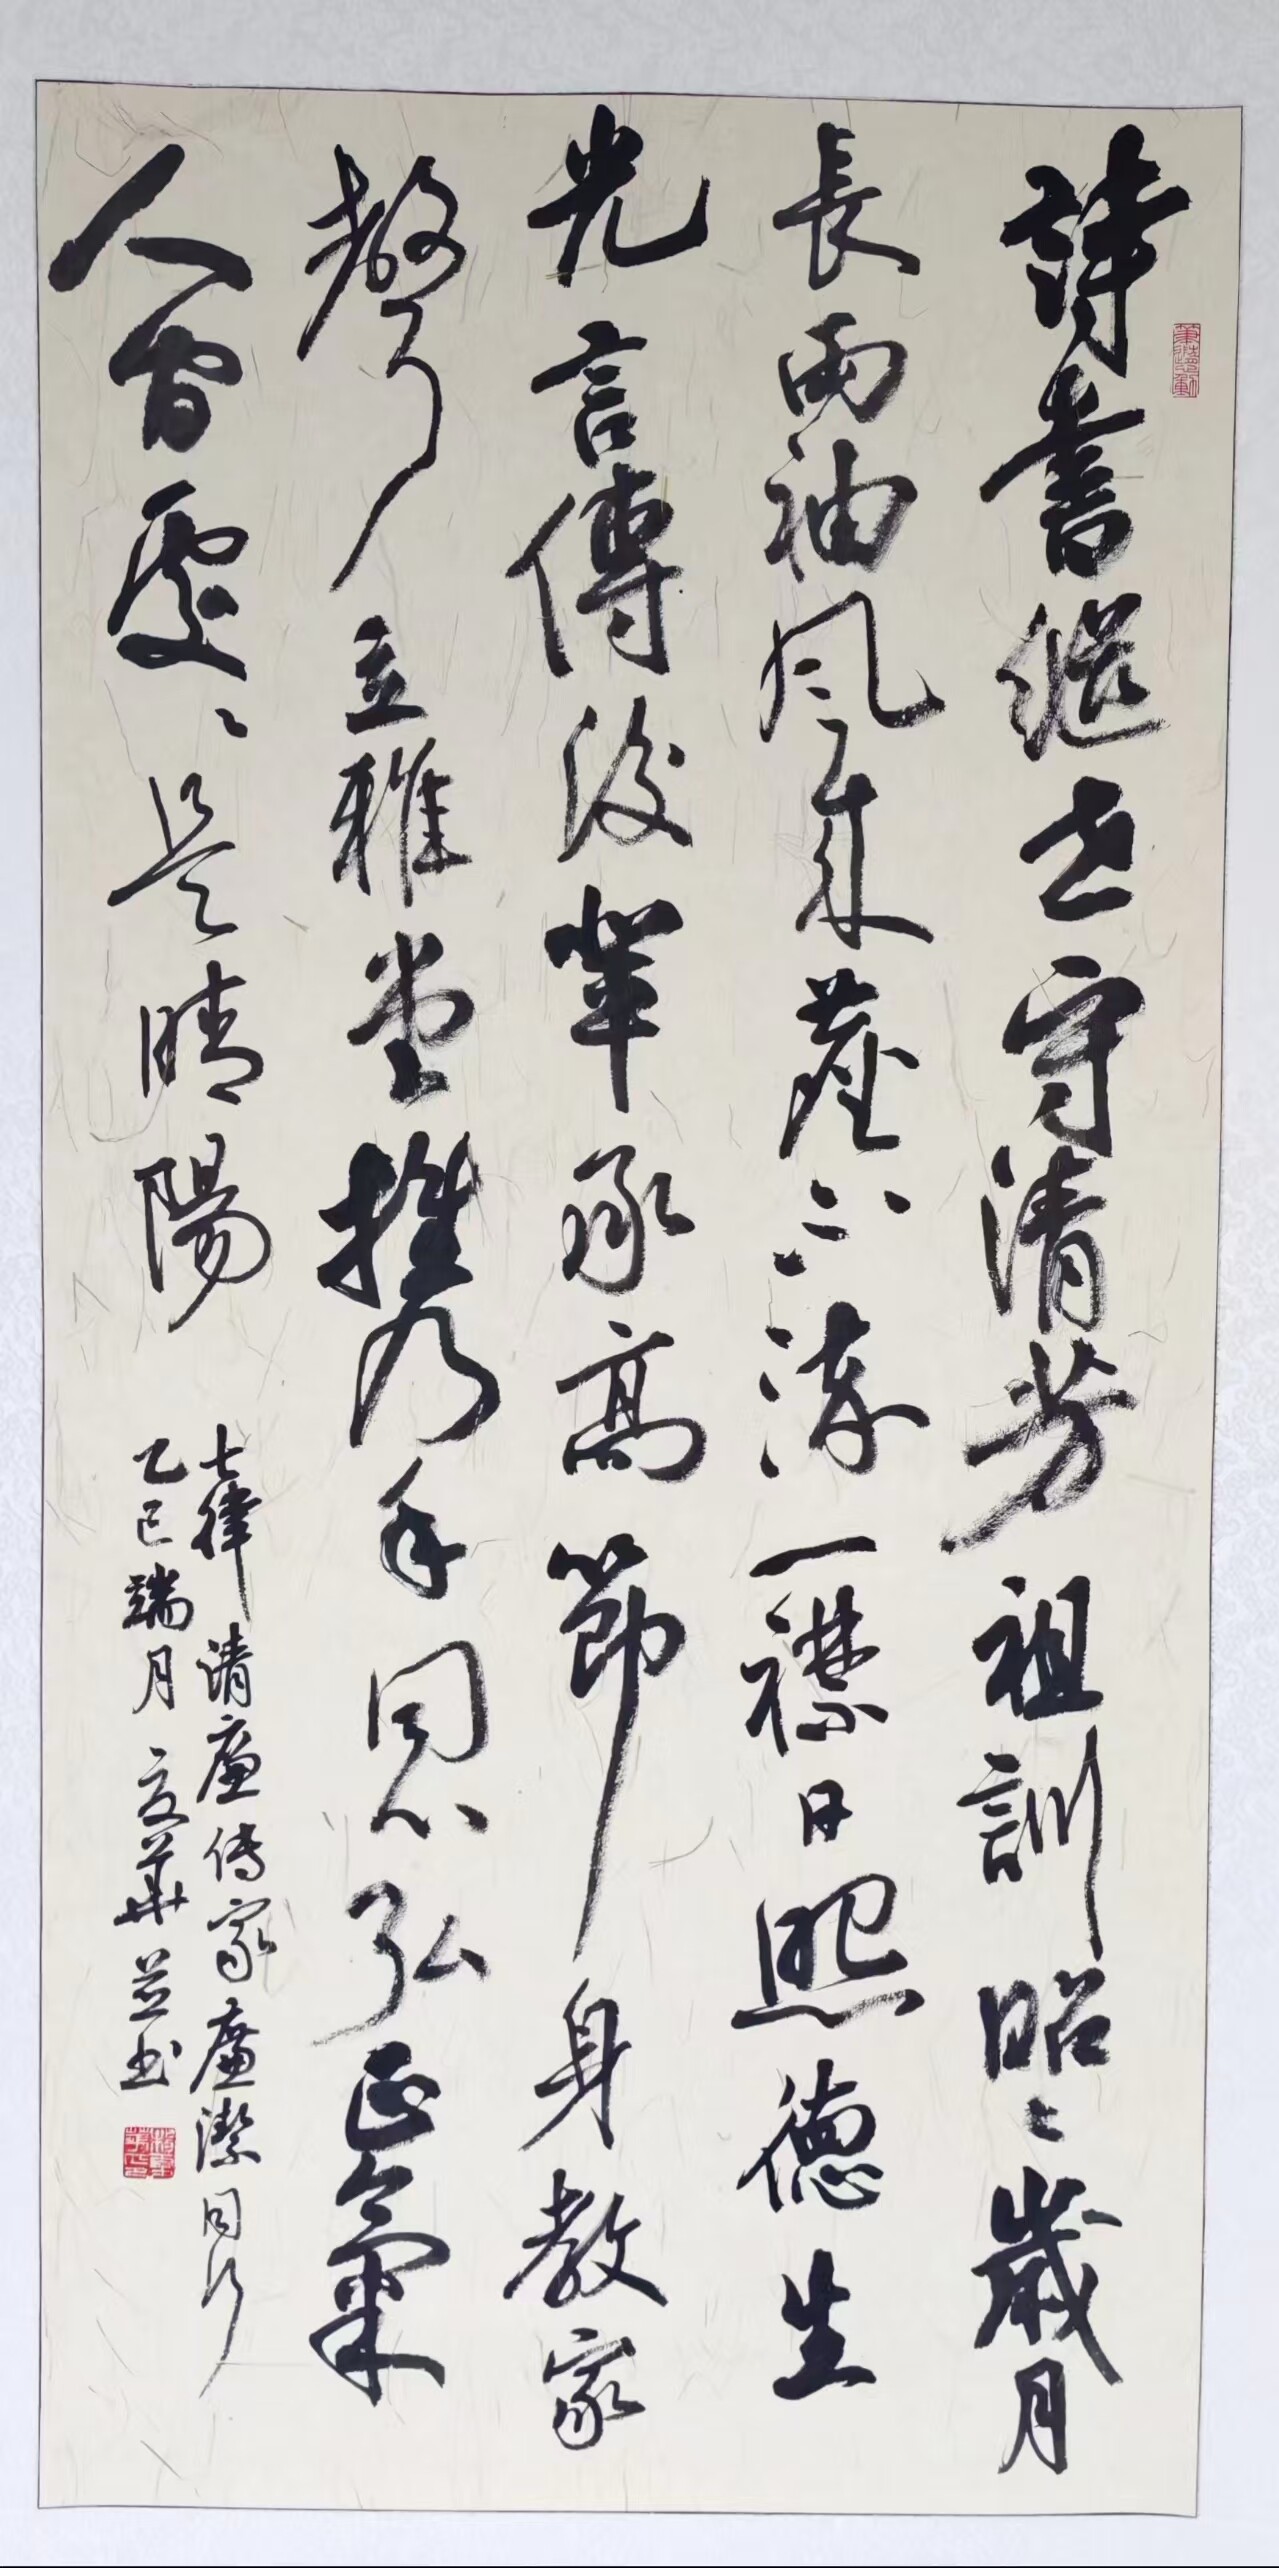 詩書繼世守清芳祖訓昭〻歲月
長兩袖風來塵不染一襟日照德生
光言傳後輩承高節身教家
聲立雅堂攜手同心弘正氣
人間處〻是晴陽
七律清廉傳家廉潔同行
乙巳端月文華並书